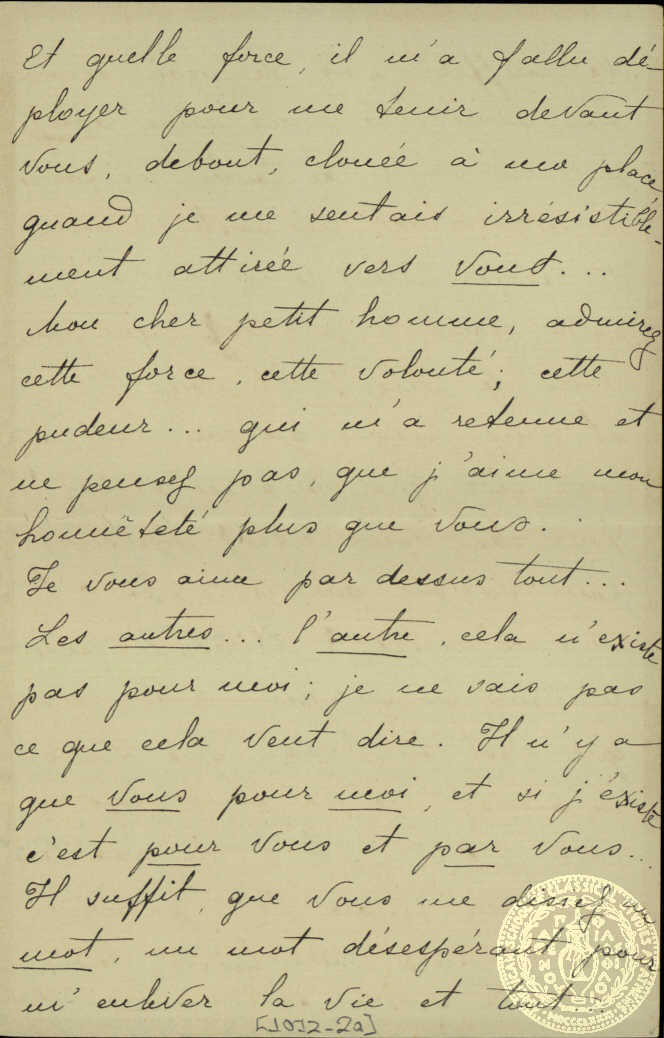 Et quelle force, il m'a fallu dé-
ployer pour me tenir devant
vous, debout, clouée à ma place
quand je me sentais irrésistible-
ment attirée vers vous...
Mon cher petit homme, admirez
cette force, cette volonté; cette
pudeur... qui m'a retenue et
ne pensez pas, que j'aime mon
honnêteté plus que vous.
Je vous aime par dessus tout...
Les autres... l'autre, cela n'existe
pas pour moi; je ne sais pas
ce que cela veut dire. Il n'y a
que vous pour moi, et si j'existe
c'est pour vous et par vous...
Il suffit, que vous me disiez un
mot, un mot désespérant pour
m'enlever la vie et tout...
[1012-2a]